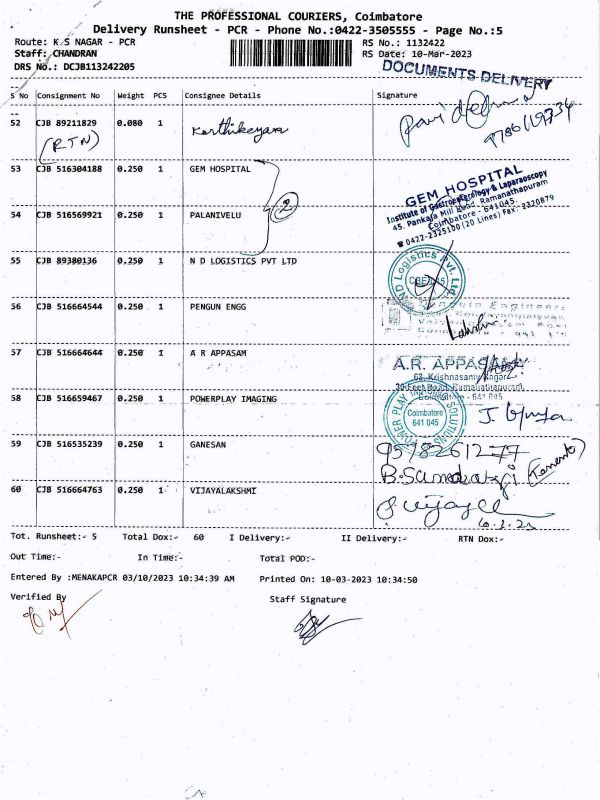 THE PROFESSIONAL COURIERS, Coimbatore
Delivery Runsheet - PCR - Phone No.:0422-3505555 - Page No.:5
Route: K S NAGAR - PCR
RS No.: 1132422
Staff: CHANDRAN
RS Date: 10-Mar-2023
DRS No.: DCJB113242205
DOCUMENTS DELIVERY
S No Consignment No Weight PCS Consignee Details Signature
52 CJB 89211829 0.080 1 Karthikeyan
(RTN)
53 CJB 516304188 0.250 1 GEM HOSPITAL
GEM HOSPITAL
Institute of Gastroenterology & Laparoscopy
45, Pankaja Mill Road, Ramanathapuram
Coimbatore - 641045.
☎ 0422-2325100 (20 Lines) Fax: 2320879
2
54 CJB 516569921 0.250 1 PALANIVELU
55 CJB 89380136 0.250 1 N D LOGISTICS PVT LTD
ND Logistics Pvt. Ltd.
56 CJB 516664544 0.250 1 PENGUN ENGG
57 CJB 516664644 0.250 1 A R APPASAM
A.R. APPASAM
63, Krishnasamy Nagar
30-Feet Road, Ramanathapuram
Coimbatore - 641 045
58 CJB 516659467 0.250 1 POWERPLAY IMAGING
POWER PLAY IMAGING SOLUTIONS
Coimbatore
641 045
59 CJB 516535239 0.250 1 GANESAN
9578261277
60 CJB 516664763 0.250 1 VIJAYALAKSHMI
Tot. Runsheet:- 5 Total Dox:- 60 I Delivery:- II Delivery:- RTN Dox:-
Out Time:- In Time:- Total POD:-
Entered By :MENAKAPCR 03/10/2023 10:34:39 AM Printed On: 10-03-2023 10:34:50
Verified By Staff Signature